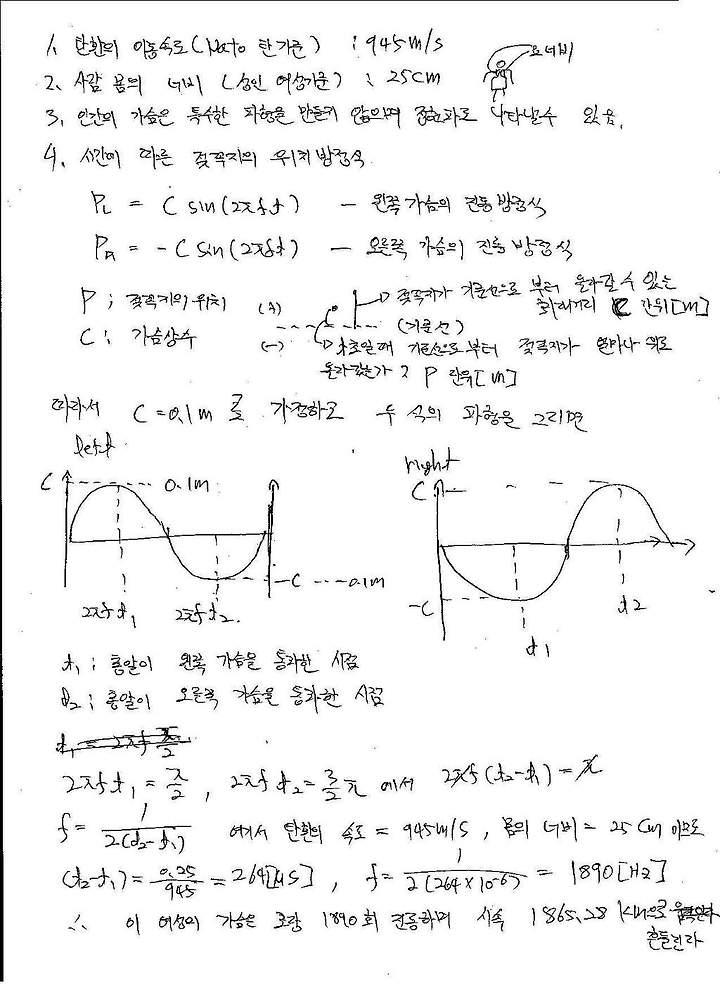 1. 탄환의 이동속도(Nato 탄기준) : 945m/s
요너비
2. 사람 몸의 너비 (성인 여성기준) : 25cm
3. 인간의 가슴은 특수한 파형을 만들지 않으며 정현파로 나타낼수 있음.
4. 시간에 따른 젖꼭지의 위치방정식
P_L = C sin(2πft) — 왼쪽가슴의 진동방정식
P_R = -C sin(2πft) — 오른쪽 가슴의 진동방정식
P ; 젖꼭지의 위치
C ; 가슴상수
(+)
(-)
(기준선)
젖꼭지가 기준선으로 부터 올라갈수 있는
최대거리 C 단위[m]
t초일때 기준선으로부터 젖꼭지가 얼마나 위로
올라갔는가? P 단위[m]
따라서 C=0.1m 로 가정하고 두 식의 파형을 그리면
left
C 0.1m
-C -0.1m
2πft₁ 2πft₂
right
C
-C
t1
t2
t₁ ; 총알이 왼쪽 가슴을 통과한 시점
t₂ ; 총알이 오른쪽 가슴을 통과한 시점
t₁ = 2πf π/2
2πft₁ = π/2 , 2πft₂ = 3/2 π 에서 2πf(t₂-t₁) = π
f = 1/2(t₂-t₁) 여기서 탄환의 속도 = 945m/s , 몸의 너비 = 25cm 이므로
(t₂-t₁) = 0.25/945 = 264[μs] , f = 1/2(264×10⁻⁶) = 1890[Hz]
∴ 이 여성의 가슴은 초당 1890회 진동하며 시속 1865.28 km으로
흔들린다